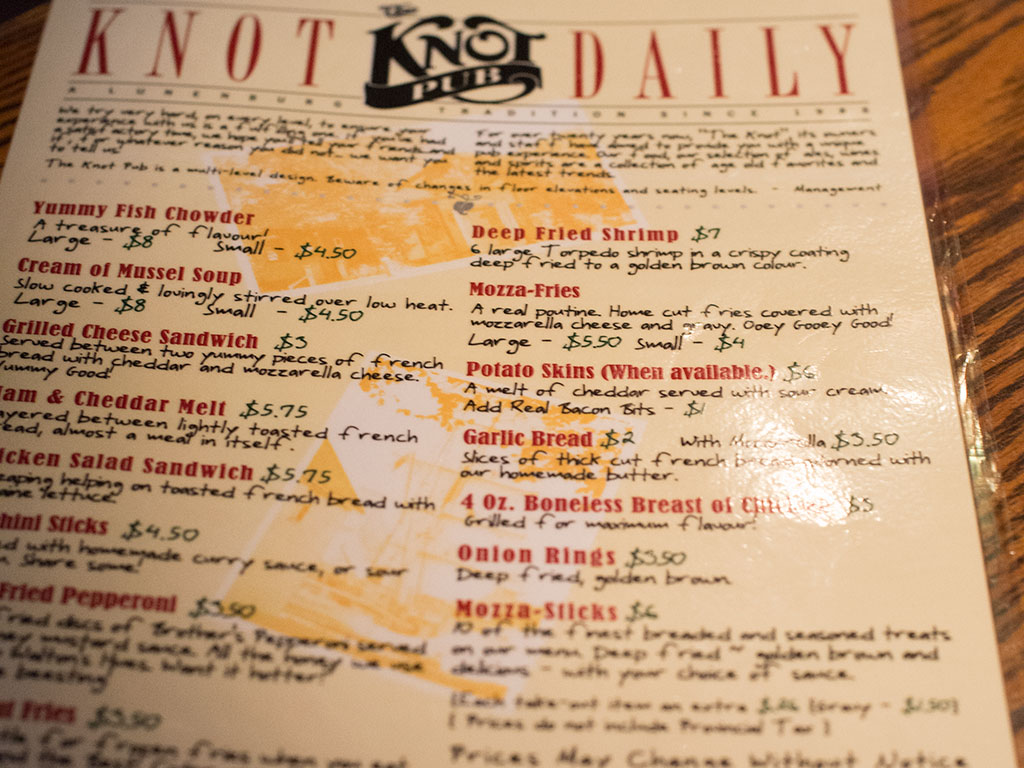 KNOT The KNOT PUB DAILY
A LUNENBURG TRADITION SINCE
We try very hard, on every level, to ensure your
to tell us!
For over twenty years now, "The Knot", its owners
and staff hard to provide you with a unique
pub experience. Our food, our selection of ales, wines
and spirits are a collection of age old favorites and
the latest trends.
The Knot Pub is a multi-level design. Beware of changes in floor elevations and seating levels. - Management
Yummy Fish Chowder
A treasure of flavour!
Large - $8 Small - $4.50
Cream of Mussel Soup
Slow cooked & lovingly stirred over low heat.
Large - $8 Small - $4.50
Grilled Cheese Sandwich $3
Served between two yummy pieces of french
bread with cheddar and mozzarella cheese.
Yummy Good!
Ham & Cheddar Melt $5.75
ayered between lightly toasted french
ead, almost a meal in itself.
icken Salad Sandwich $5.75
eaping helping on toasted french bread with
aine lettuce.
hini Sticks $4.50
ed with homemade curry sauce, or sour
Share some!
Fried Pepperoni $3.50
ried discs of Brother's Pepperoni served
ney mustard sauce. All the honey we use
Want it hotter?
Fries $3.50
for frozen fries when you get
Deep Fried Shrimp $7
6 large Torpedo shrimp in a crispy coating
deep fried to a golden brown colour.
Mozza-Fries
A real poutine. Home cut fries covered with
mozzarella cheese and gravy. Ooey Gooey Good!
Large - $5.50 Small - $4
Potato Skins (When available.) $6
A melt of cheddar served with sour cream.
Add Real Bacon Bits - $1
Garlic Bread $2 With Mozzarella $3.50
Slices of thick cut french bread adorned with
our homemade butter.
4 Oz. Boneless Breast of Chicken $5
Grilled for maximum flavour!
Onion Rings $3.50
Deep fried, golden brown
Mozza-Sticks $6
10 of the finest breaded and seasoned treats
on our menu. Deep fried ~ golden brown and
delicious - with your choice of sauce.
(Each take-out item an extra (Gravy - $1.50)
( Prices do not include Provincial Tax )
Prices May Change Without Notice